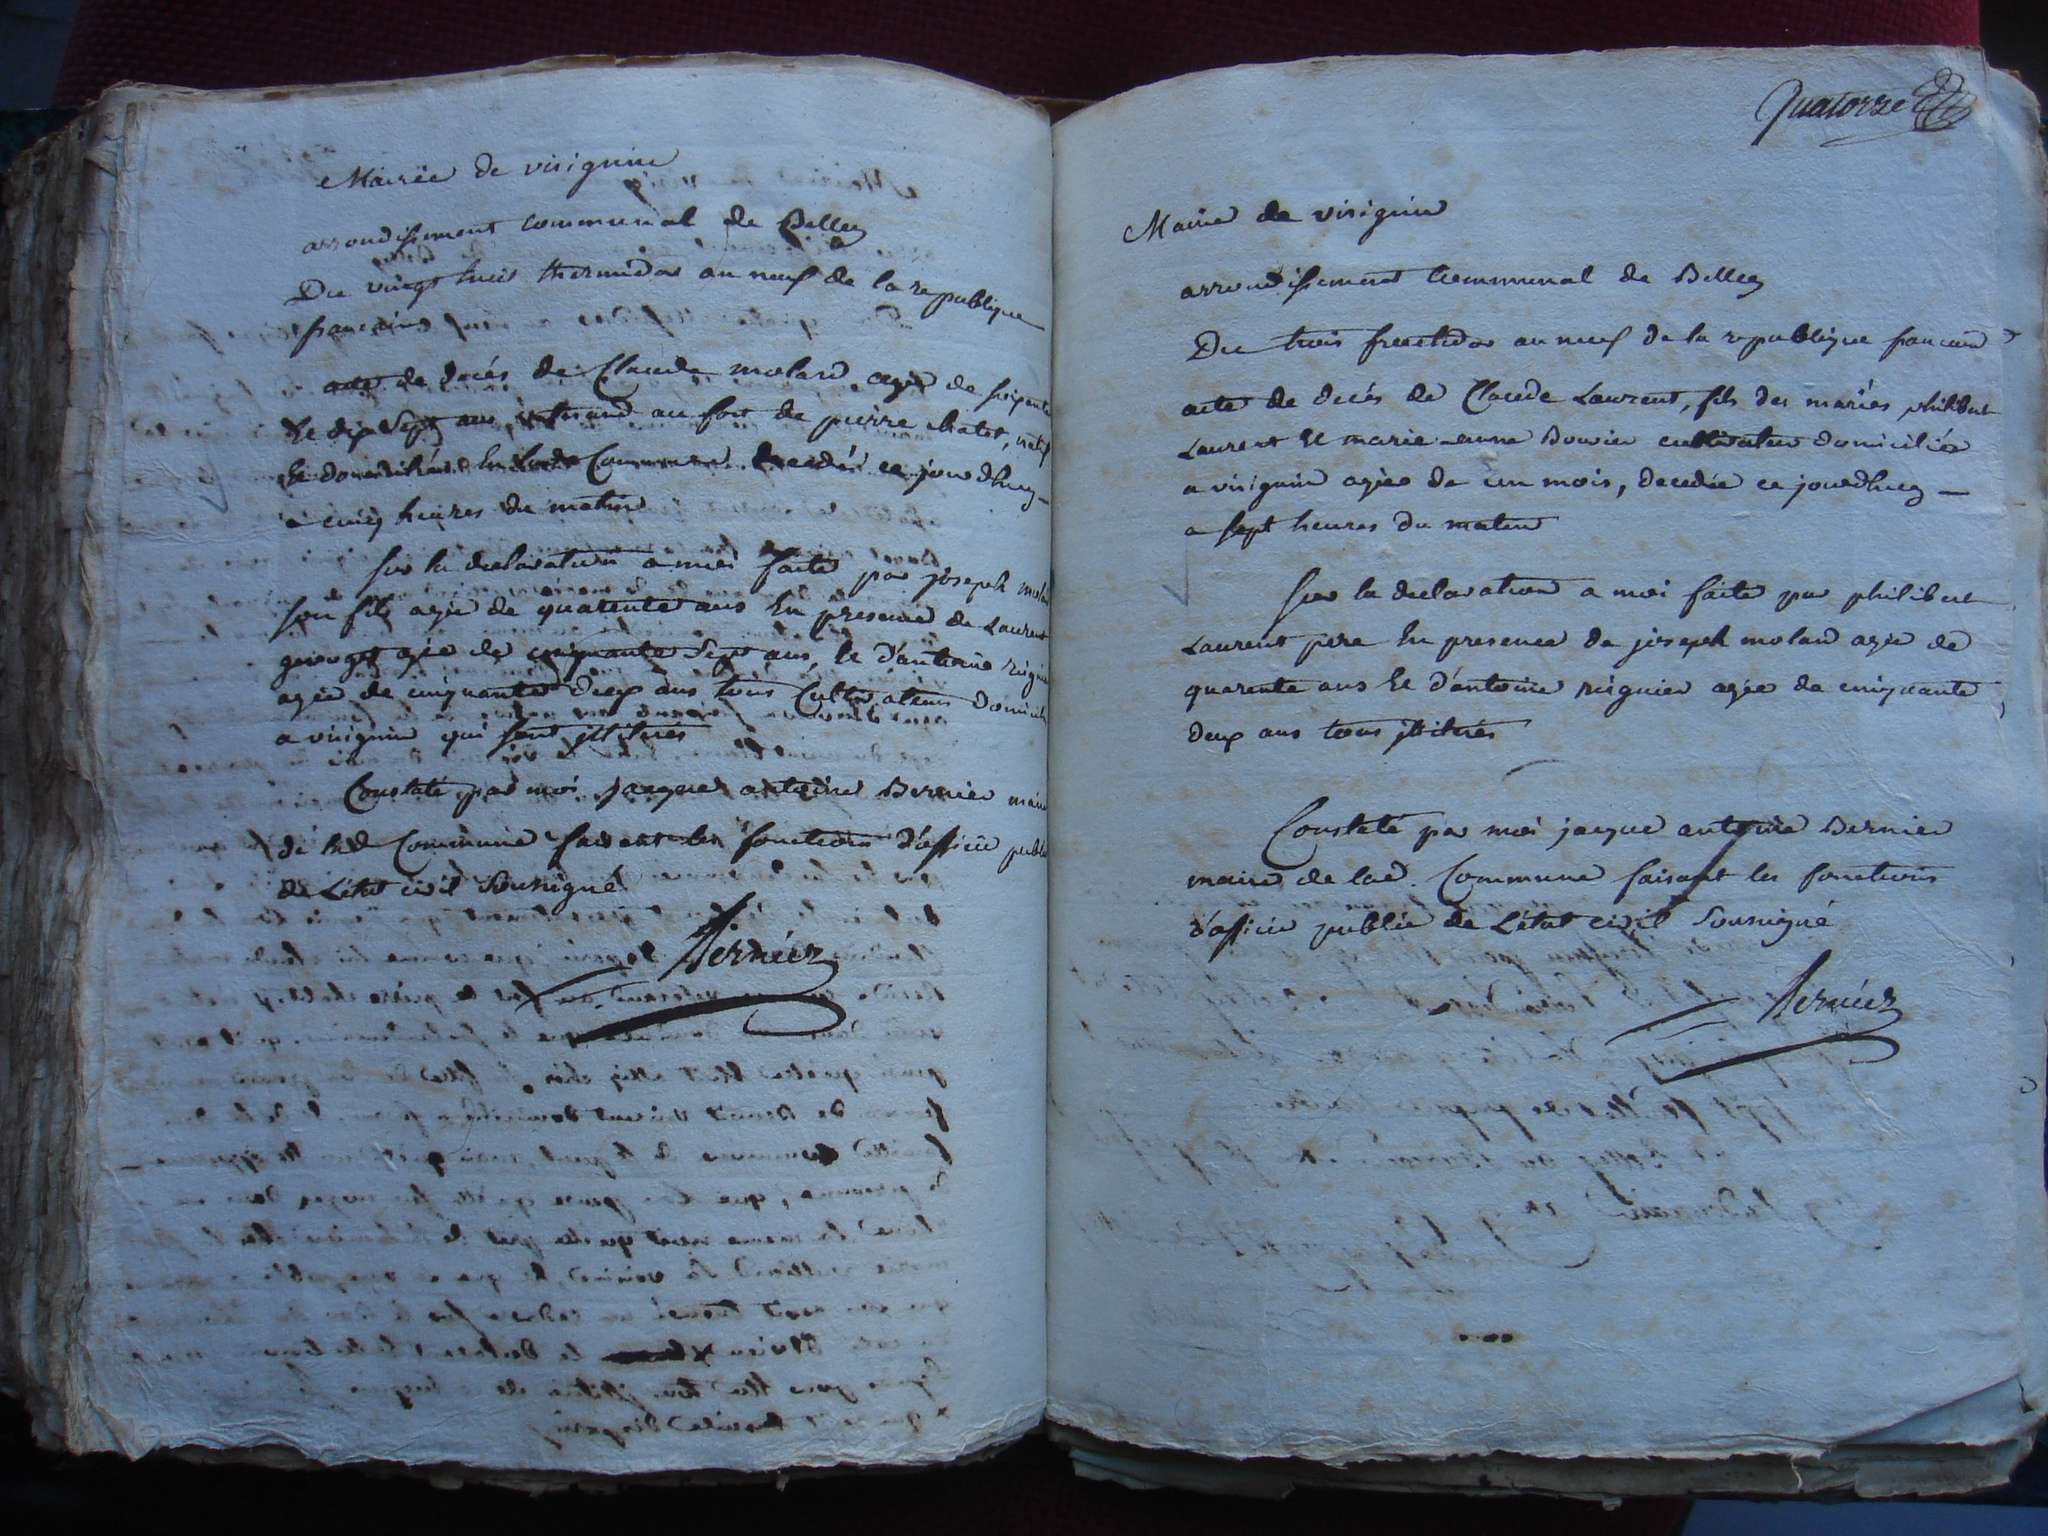 Mairie de virignin
arrondissement communal de Belley
Du vingt huit thermidor an neuf de la republique
francaise
acte de décés de Claude molard agée de soixante
et dix Sept ans, veterand au fort de pierre chatel, natif
et domicilié en lad. Commune decedée ce jourdhuy
a cinq heures du matin
sur la declaration a moi faite par joseph molard
son fils agée de quarente ans En presence de Laurent
agée de cinquante Sept ans, et d'antoine
agée de cinquante deux ans tous Cultivateurs domicilié
a virignin qui sont illitérés
Constaté par moi jacques antoine Bernier maire
de lad Commune faisant les fonctions d'officier public
de L'état civil Soussigné
Bernier
Quatorze
Mairie de virignin
arrondissement Communal de Belley
Du trois fructidor an neuf de la republique francaise
acte de décés de Claude Laurent, fils des mariés philibert
Laurent et marie-anne Bouvier cultivateur domiciliés
a virignin agée de un mois, decedée ce jourdhuy
a sept heures du matin
sur la declaration a moi faite par philibert
Laurent pere En presence de joseph molard agée de
quarente ans et d'antoine agée de cinquante
deux ans tous illitérés
Constaté par moi jacque antoine Bernier
maire de lad. Commune faisant les fonctions
d'officier public de L'état civil Soussigné
Bernier